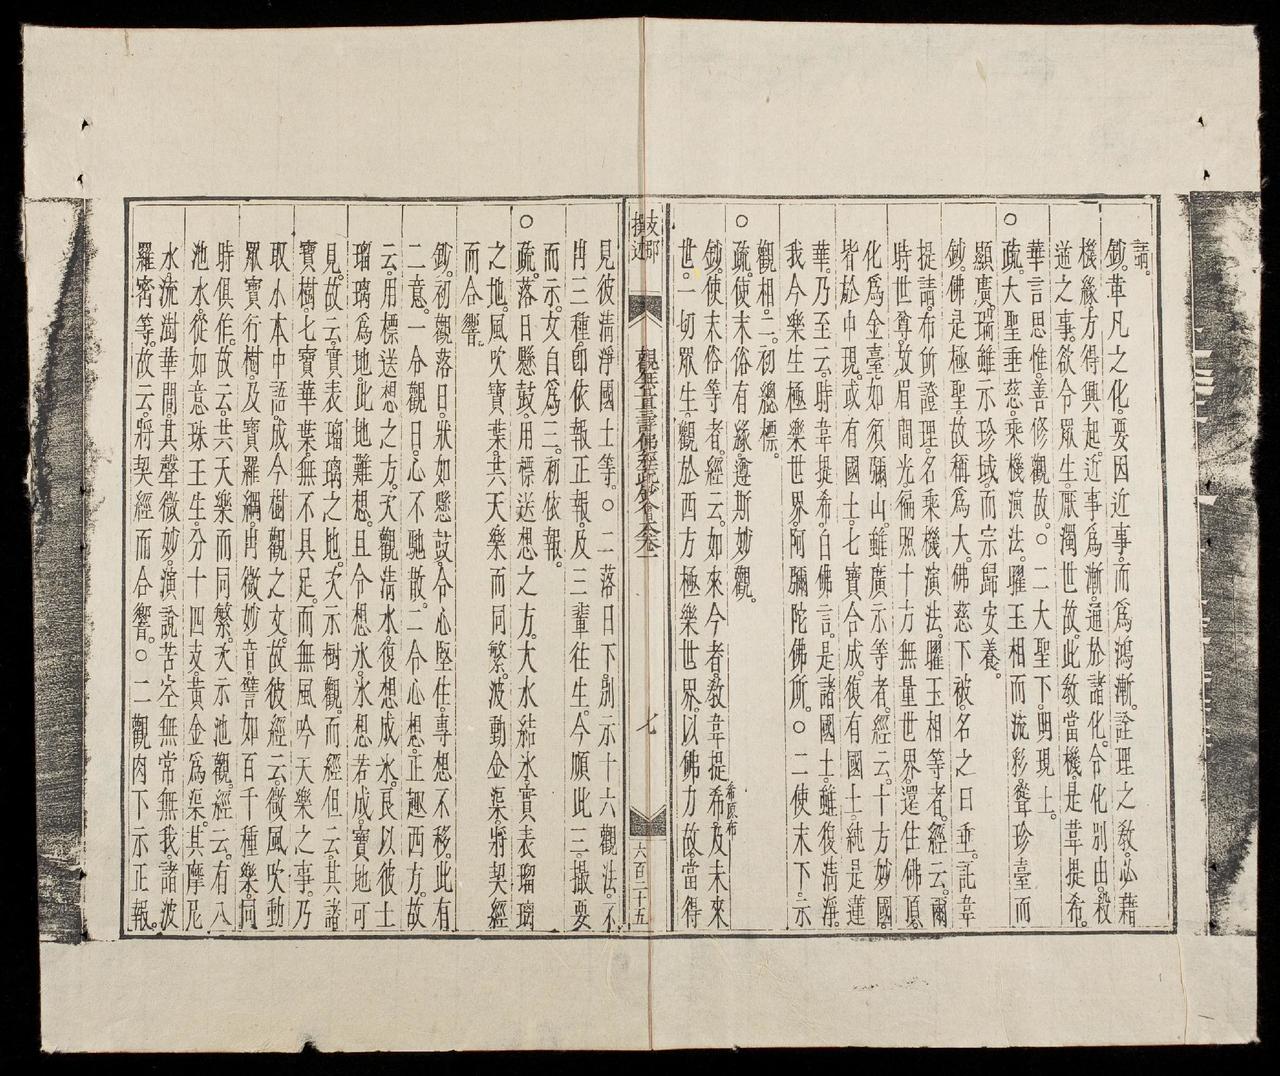 請。
鈔。韋凡之化。要因近事。而爲鴻漸。詮理之敎。必藉
機緣。方得興起。近事爲漸。通於諸化。令化別由。殺
逆之事。欲令眾生。厭濁世故。此敎當機。是韋提希。
華言思惟。善修觀故。○二大聖下。明現土。
○疏。大聖垂慈。乘機演法。曜玉相而流彩。聳珍臺而
顯瑞。雖廣示珍域。而宗歸安養。
鈔。佛是極聖。故稱爲大。佛慈下被。名之曰垂。託韋
提請。布所證理。名乘機演法。曜玉相等者。經云。爾
時世尊。放眉間光。徧照十方無量世界。還住佛頂。
化爲金臺。如須彌山。雖廣示等者。經云。十方妙國。
皆於中現。或有國土。七寶合成。復有國土。純是蓮
華。乃至云。時韋提希。白佛言。是諸國土。雖復清淨。
我今樂生極樂世界。阿彌陀佛所。○二使末下。示
觀相。二。初總標。
○疏。使末俗有緣。遵斯妙觀。
鈔。使末俗等者。經云。如來今者。敎韋提希。及未來
希原布
世。一切眾生。觀於西方極樂世界。以佛力故。當得
支那
撰述
觀無量壽佛經疏鈔會本卷一
七
六百二十五
見彼清淨國土等。○二落日下。別示十六觀法。不
出三種。卽依報正報。及三輩往生。今順此三。撮要
而示。文自爲三。初依報。
○疏。落日懸鼓。用標送想之方。大水結冰。實表瑠璃
之地。風吹寶葉。共天樂而同繁。波動金渠。將契經
而合響。
鈔。初觀落日。狀如懸鼓。令心堅住。專想不移。此有
二意。一令觀日。心不馳散。二令心想。正趣西方。故
云。用標送想之方。次觀清水。復想成冰。良以彼土
瑠璃爲地。此地難想。且令想冰。冰想若成。寶地可
見。故云。實表瑠璃之地。次示樹觀。而經但云。其諸
寶樹。七寶華葉。無不具足。而無風吟天樂之事。乃
取小本中語。成今樹觀之文。故彼經云。微風吹動
眾寶行樹。及寶羅網。出微妙音。譬如百千種樂。同
時俱作。故云。共天樂而同繁。次示池觀。經云。有八
池水。從如意珠王生。分十四支。黃金爲渠。其摩尼
水流澍華間。其聲微妙。演說苦空無常無我。諸波
羅密等。故云。將契經而合響。○二觀肉下示正報。